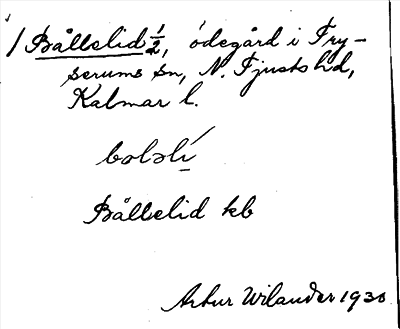 Bållelid ½, ödegård i Try-
serums sn, N. Tjusts hd,
Kalmar l.
boləli
Bållelid kb
Artur Wilander 1930